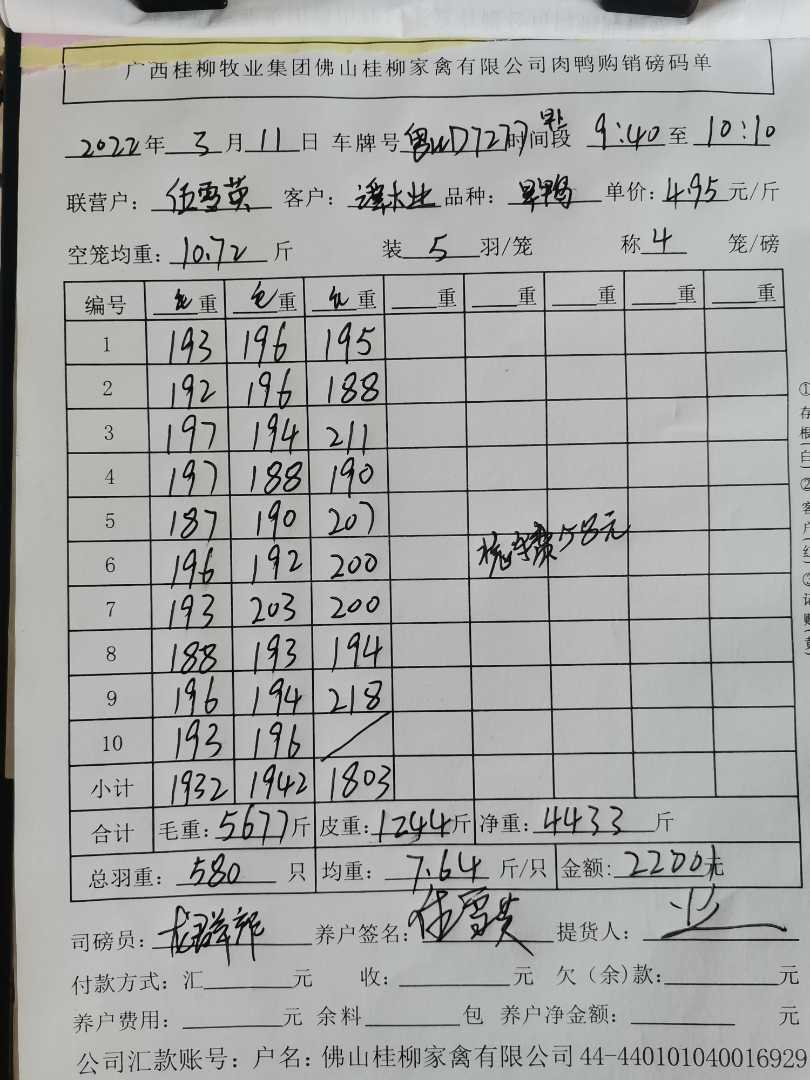 广西桂柳牧业集团佛山桂柳家禽有限公司肉鸭购销磅码单
2022年 3月11日 车牌号 粤WD7277 时间段 9:40至10:10
联营户：伍雪英 客户：谭木业 品种：旱鸭 单价：4.95元/斤
空笼均重：10.72斤 装5羽/笼 称4笼/磅
编号 毛重 毛重 毛重 重 重 重 重 重
1 193 196 195
2 192 196 188
3 197 194 211
4 197 188 190
5 187 190 207
6 196 192 200
7 193 203 200
8 188 193 194
9 196 194 218
10 193 196
小计 1932 1942 1803
58元
合计 毛重：5677斤 皮重：1244斤 净重：4433斤
总羽重：580只 均重：7.64斤/只 金额：22001元
司磅员： 养户签名：伍雪英 提货人：业
付款方式：汇 元 收： 元 欠（余）款： 元
养户费用： 元 余料 包 养户净金额： 元
公司汇款账号：户名：佛山桂柳家禽有限公司44-440101040016929
①存根(白)②客户(红)③记账(黄)